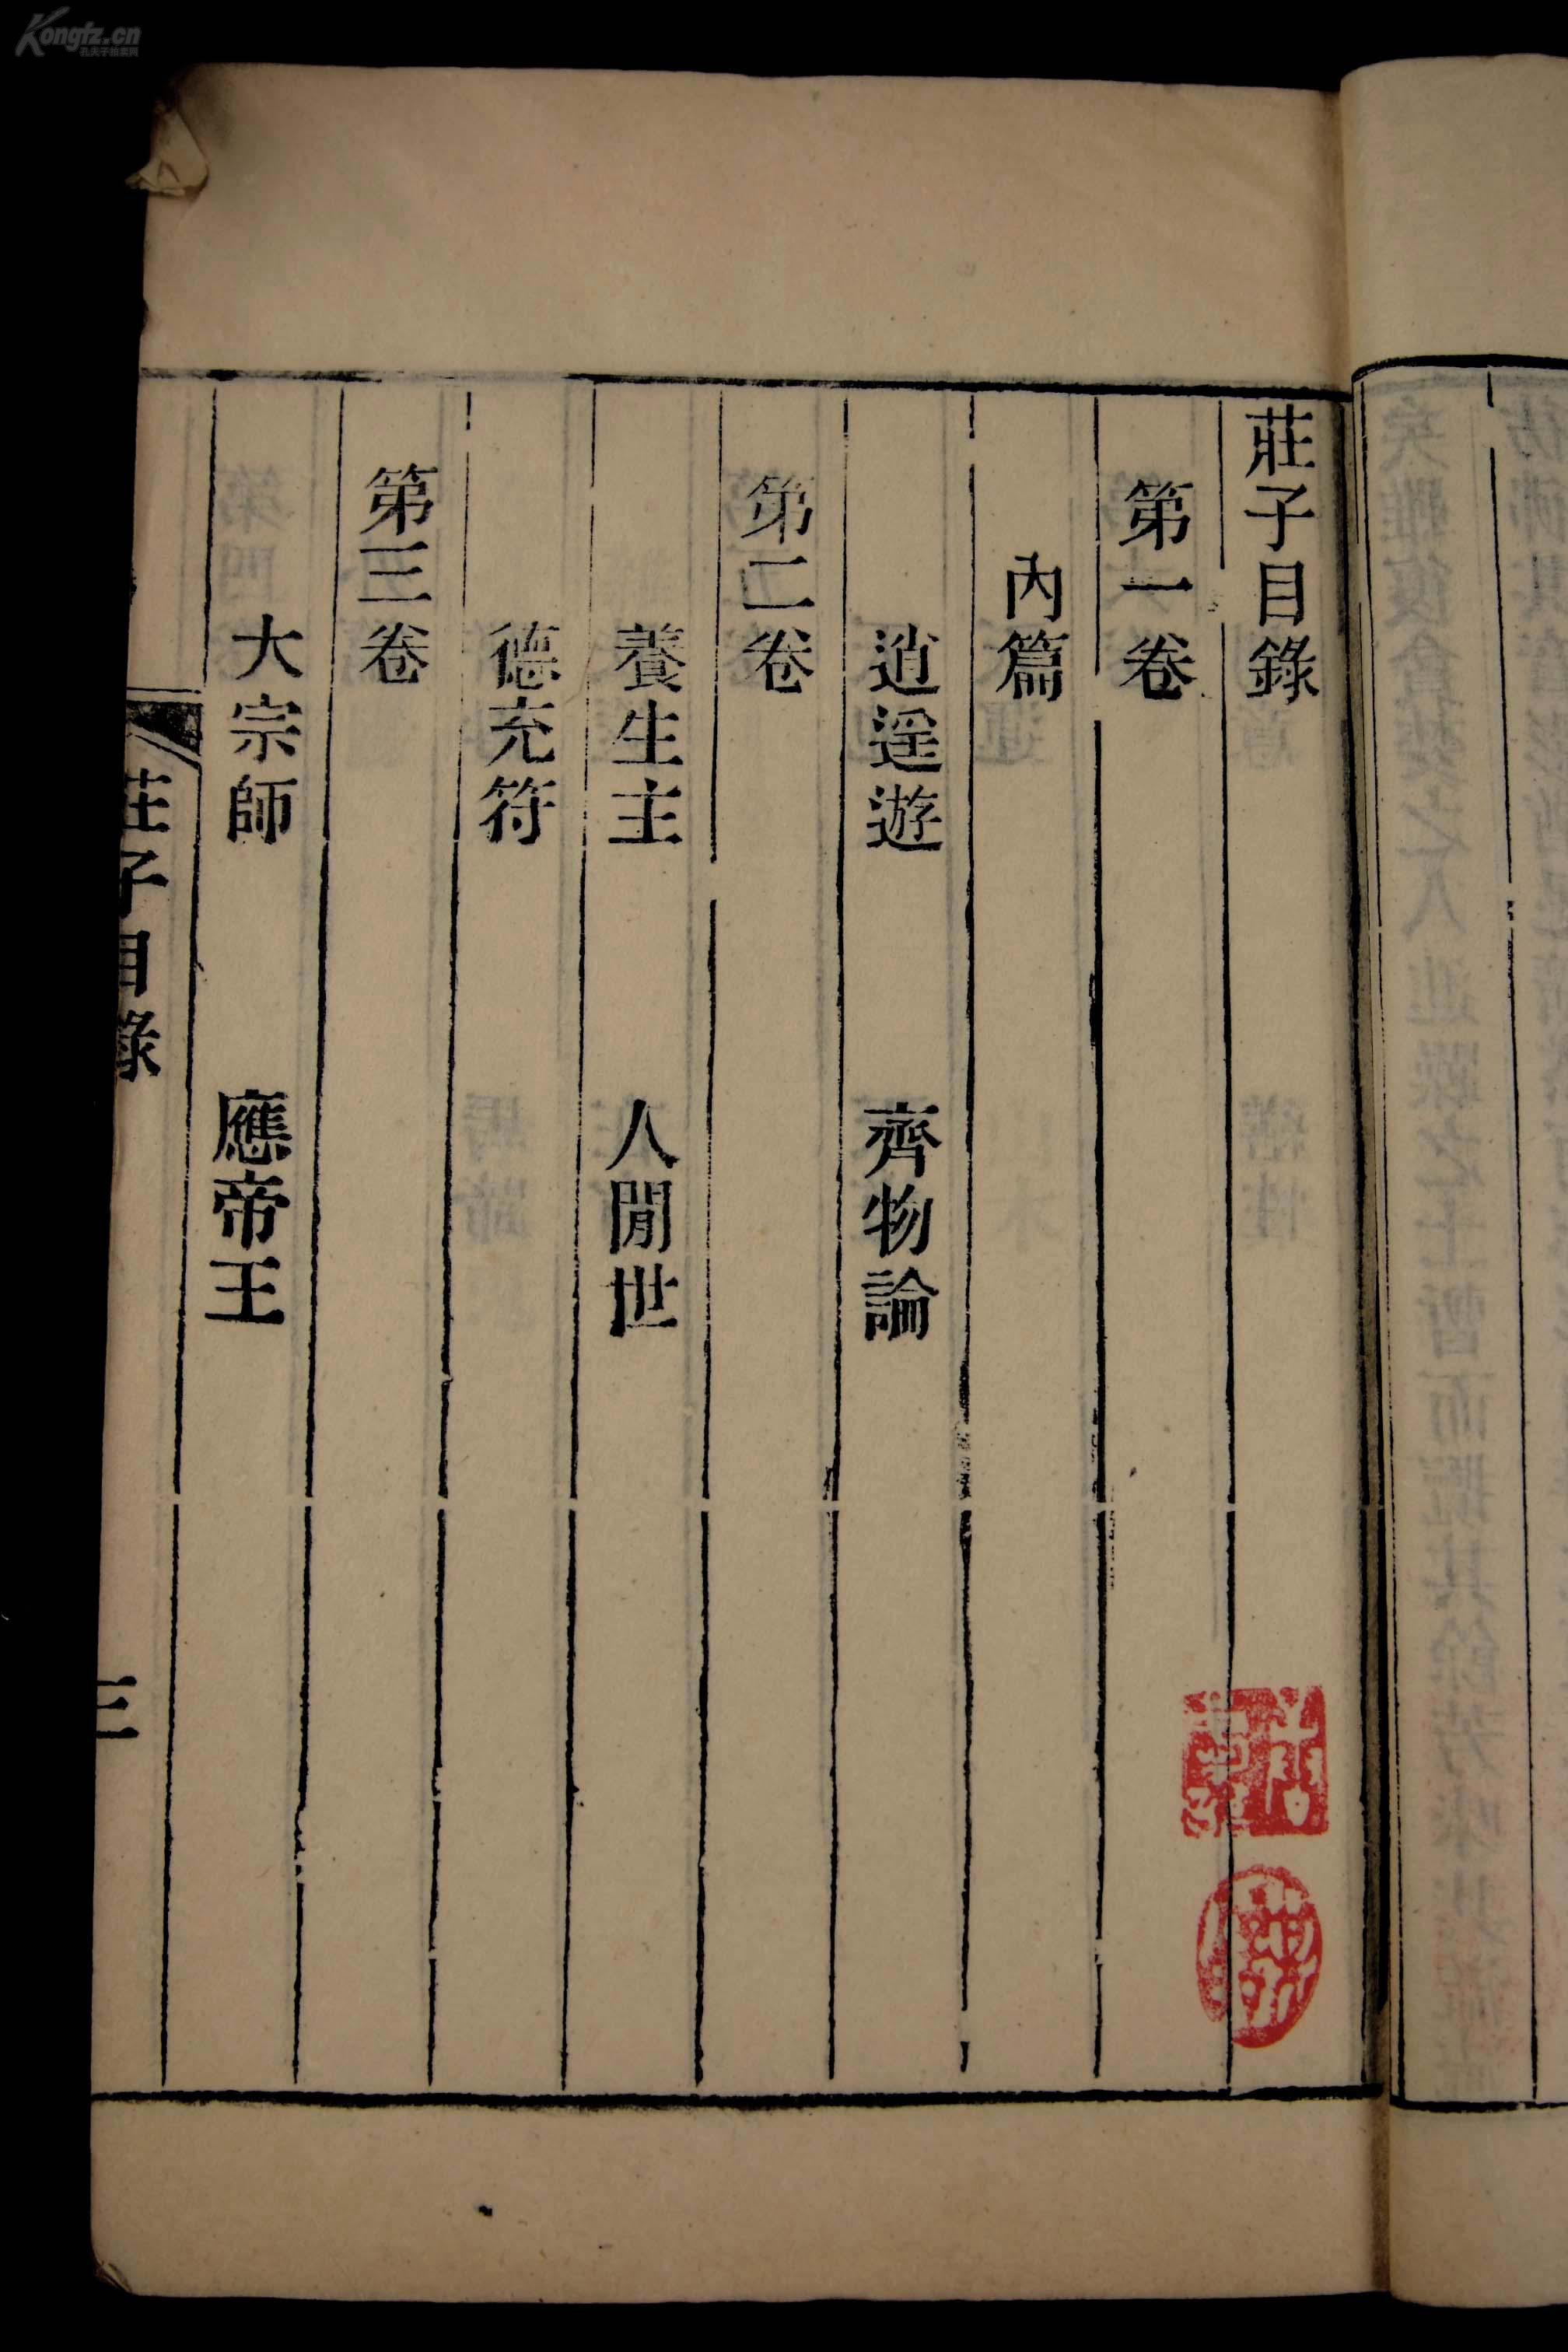 莊子目錄
第一卷
內篇
逍遥遊 齊物論
第二卷
養生主 人閒世
德充符
第三卷
大宗師 應帝王
莊子目錄
三
Kongfz.cn
孔夫子拍卖网